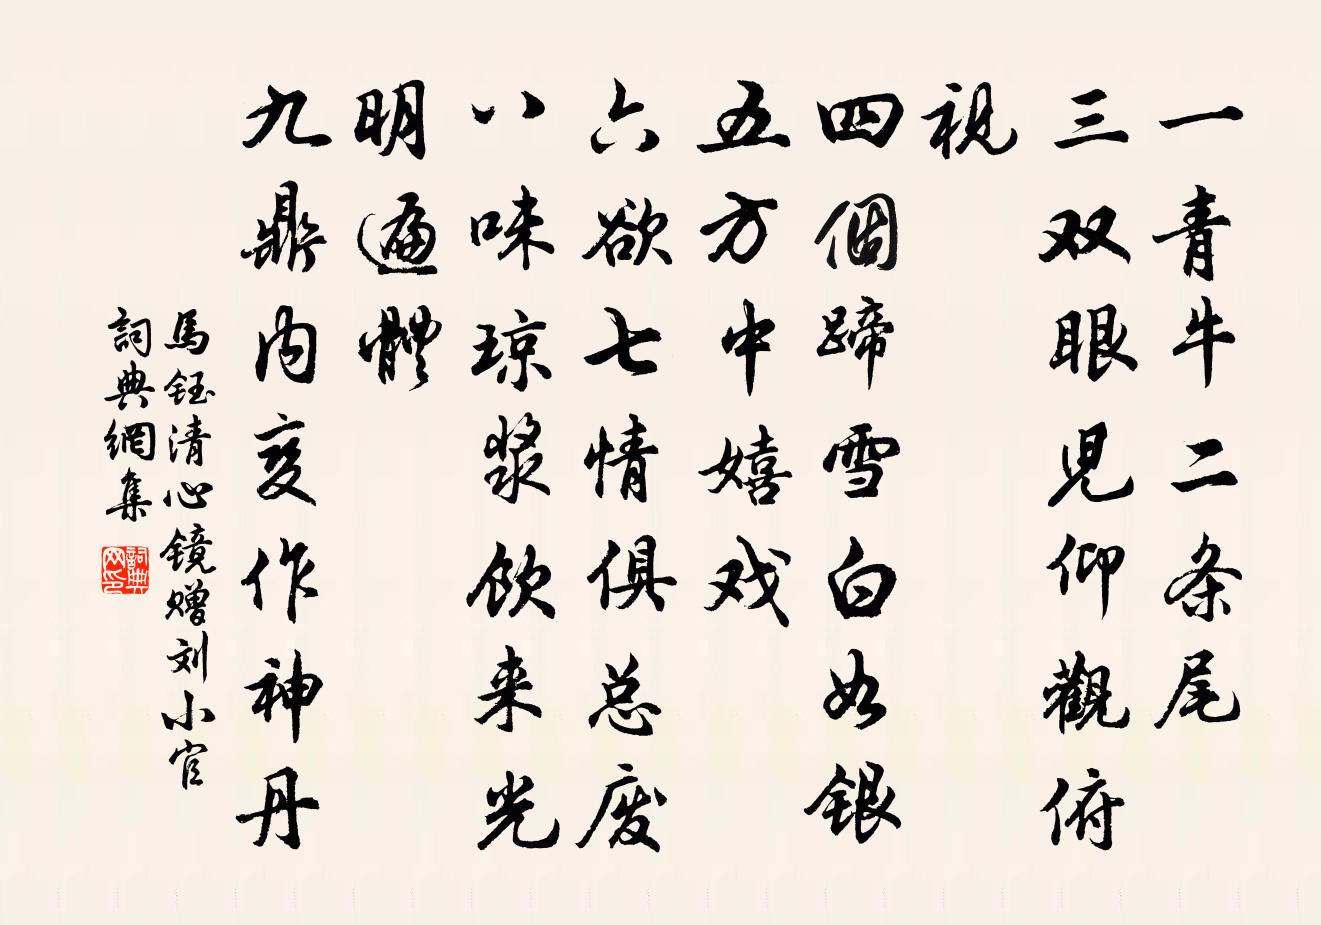 一青牛二条尾
三双眼児仰觀俯
視
四個蹄雪白如銀
五方中嬉戏
六欲七情俱总废
八味琼浆飲来光
明遍體
九鼎内变作神丹
馬鈺清心镜赠刘小官
詞典網集
詞典网印